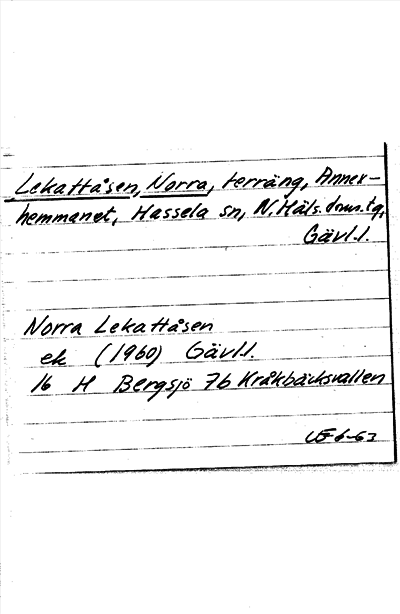 Lekattåsen, Norra, terräng, Annex-
hemmanet, Hassela sn, N. Häls. doms.tg,
Gävl.l.
Norra Lekattåsen
ek (1960) Gävl.l.
16 H Bergsjö 7b Kråkbäcksvallen
6-63